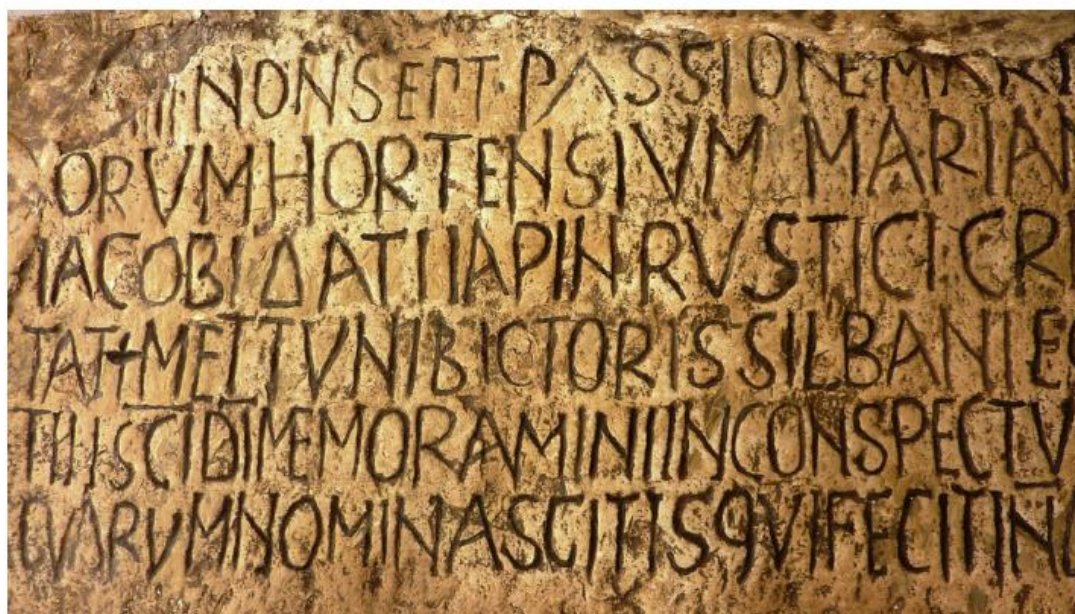 IIII NON SEPT · PASSIONE MARTI
ORVM HORTENSIVM MARIAN
IACOBI DATI IAPIN RVSTICI CR
TAT + METTVNI BICTORIS SILBANI
SCI DI MEMORAMINI IN CONSPECTV
QVARVM NOMINA SCITIS QVI FECIT IN